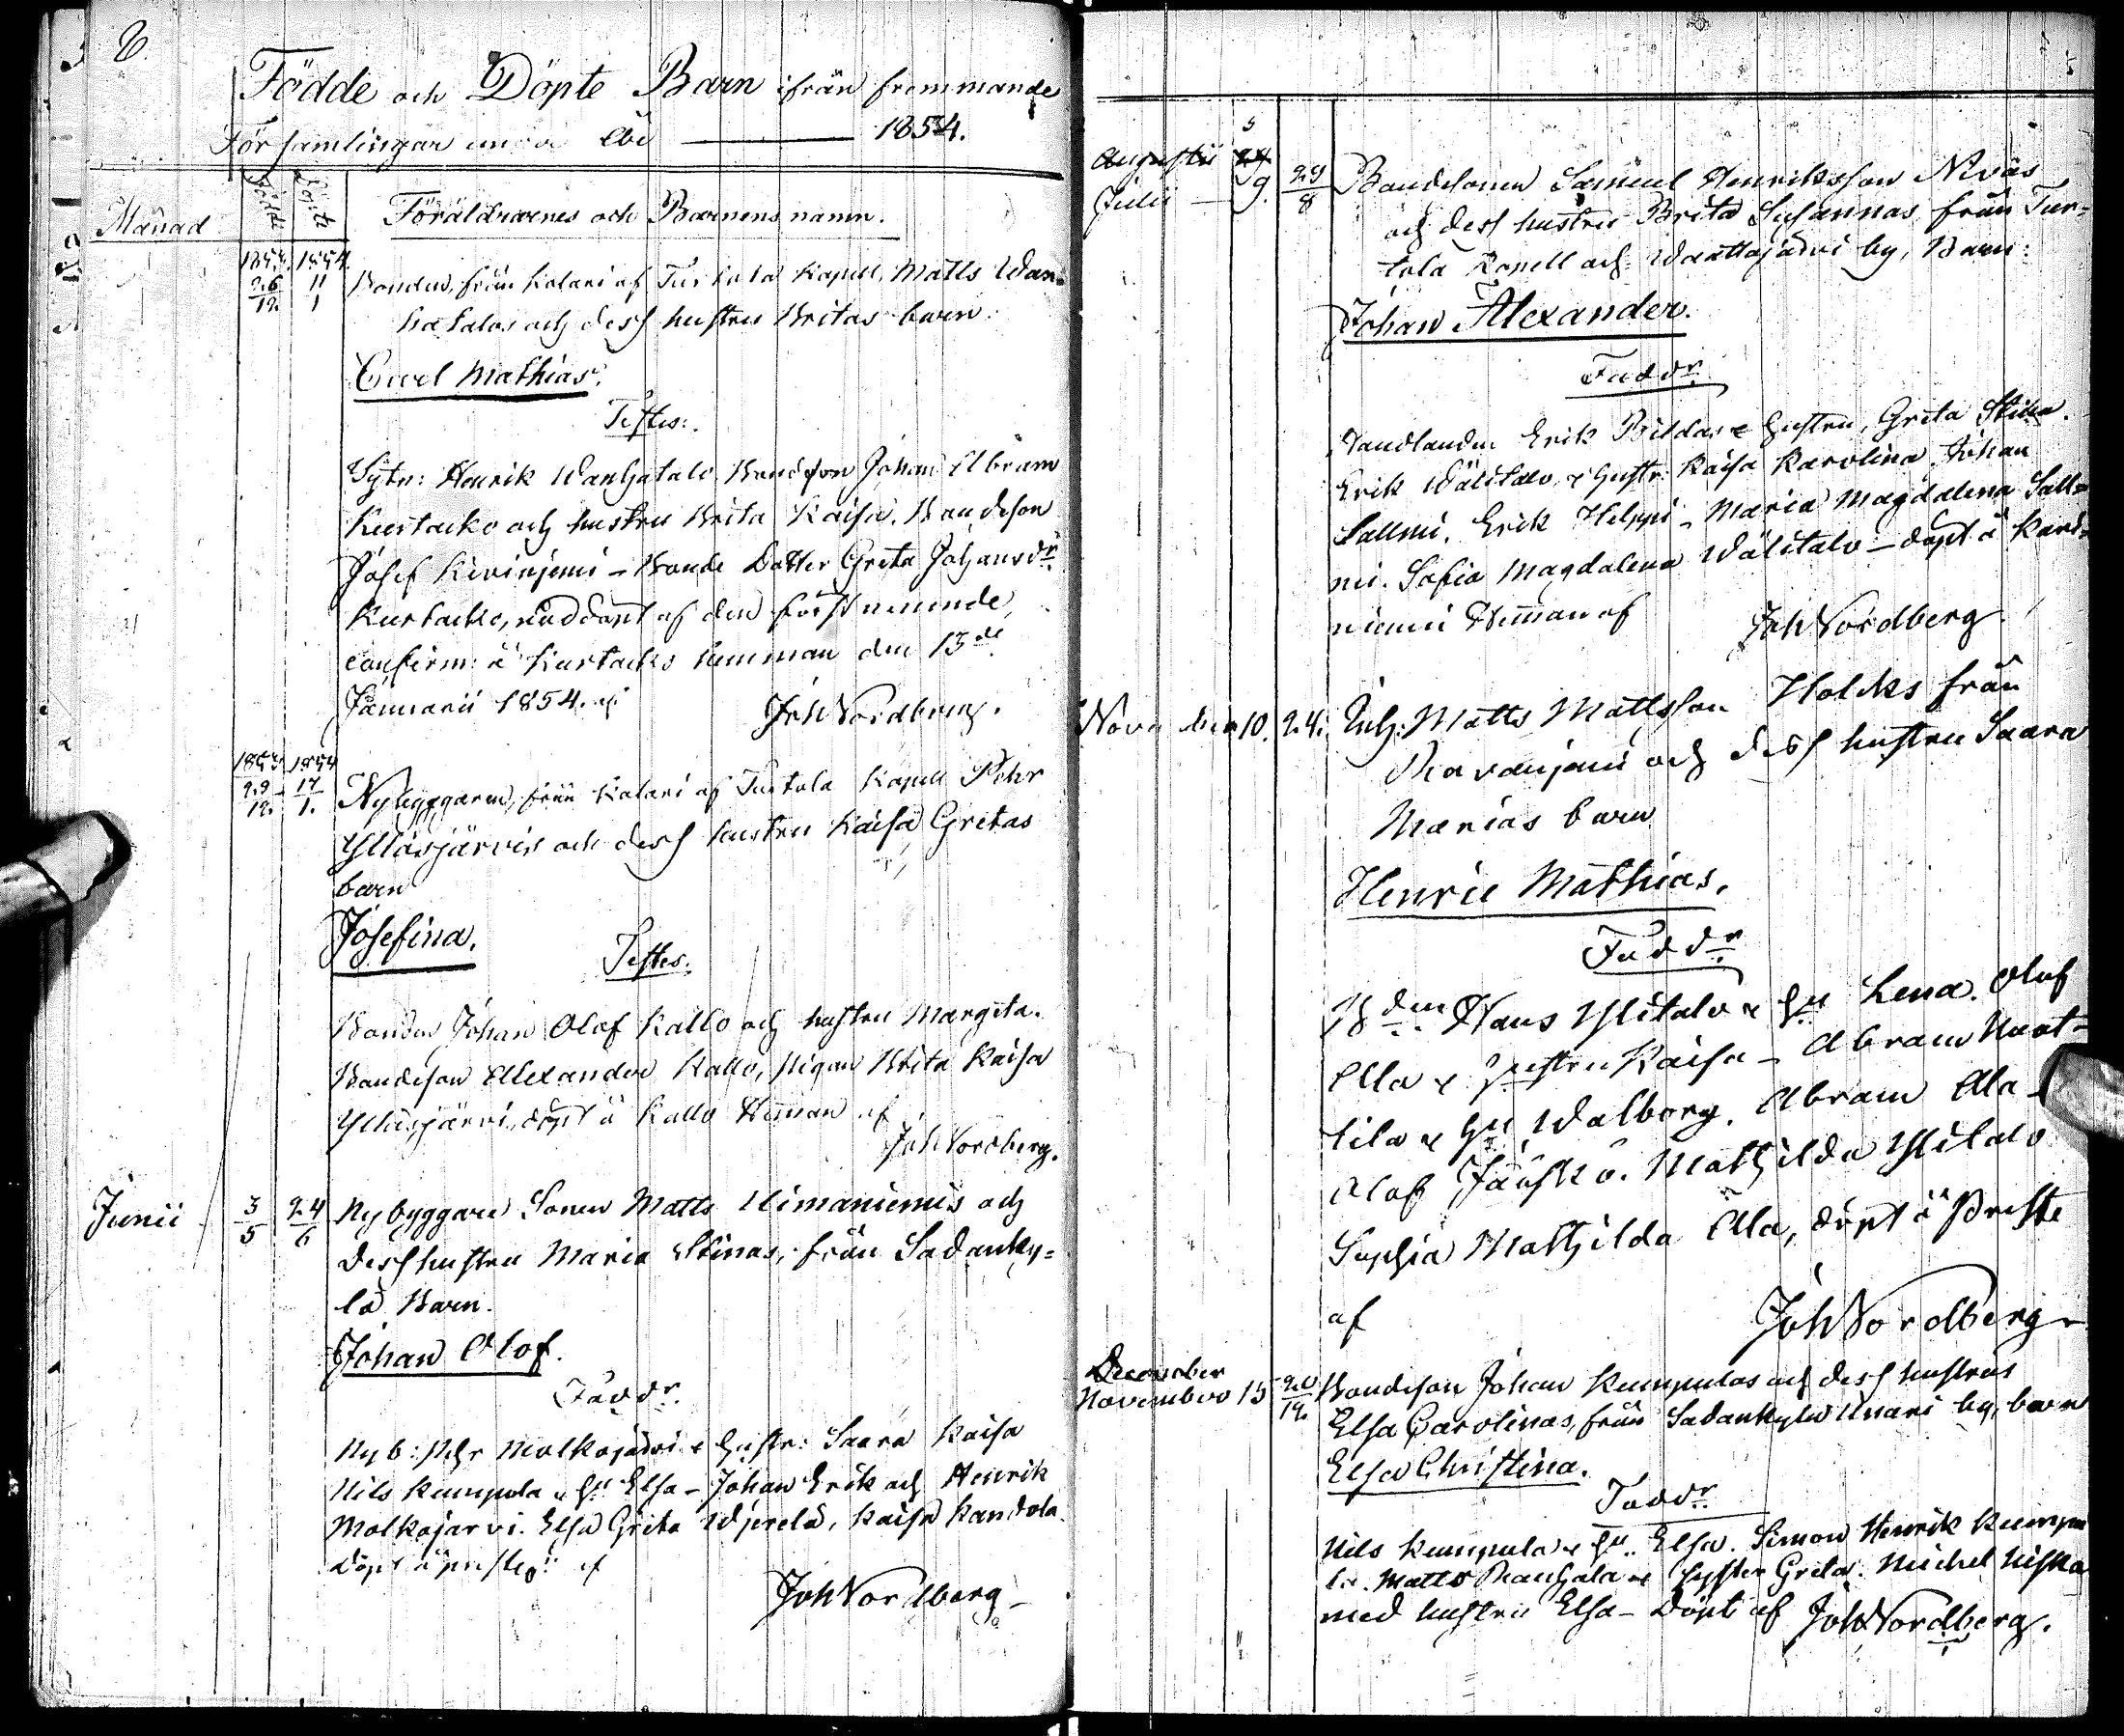 8.
Födde och Döpte Barn ifrån fremmande
Församlingar under åbr 1854.
Månad Födde Döpte Föräldrarnes och Barnens namn.
1853. 1854.
26/12. 11/1 Bonden, från Kolari af Turtola Kapell, Matts Wan=
hatalos och dess hustru Britas barn.
Carl Mathias.
Testes:
Sytn: Henrik Wanhatalo, Bondeson Johan Abram
Kurtacko och hustru Brita Kaisa. Bondeson
Josef Kiviniemi – Bonde Dotter Greta Johansdr
Kurtacko, nöddöpt af den förstnemnde,
confirm: å Kurtacko hemman den 13de
Januarii 1854. af
Joh Nordberg.
1853. 1854
29/12. 17/1. Nybyggaren, från Kolari af Turtola Kapell Pehr
Ylläsjärvis och dess hustru Kaisa Gretas
barn
Josefina.
Testes.
Bonden Johan Olof Kallo och hustru Margeta.
Bondeson Alexander Kallo, Pigan Brita Kaisa
Ylläsjärvi, döpt å Kallo Heman af
Joh Nordberg.
Junii – 3/5 24/6 Nybyggare Sonen Matts Niemaniemis och
dess hustru Maria Stinas, från Sodanky=
lä Barn.
Johan Olof.
Faddr.
Nyb: Pehr Molkojärvi & hustr: Saara Kaisa
Nils Kumpula & hu Elsa – Johan Erik och Henrik
Molkojarvi. Elsa Greta, Kaisa Kandola.
Döpt å prestg: af
Joh Nordberg –
5
Augusti 24
Julii – 9. 29/8 Bondesonen Samuel Henriksson Nivas
och dess hustru Brita Susannas från Tur=
tola Kapell och Waattojärvi by, Barn:
Johan Alexander.
Faddr.
Handlanden Erik Pildas & hustru, Greta Stina.
Erik Wälitalo, & hustr: Kaisa Karolina. Johan
Salmi. Erik Helppi – Maria Magdalena Sall=
mi. Sofia Magdalena Wälitalo – döpt å Kari=
niemi Heman af Joh Nordberg.
November 10. 24. Inh: Matts Mattsson Holcks från
Rovaniemi och dess hustru Saara
Marias barn
Henric Mathias.
Faddr.
Bdn Hans Ylitalo & hu Lena. Olof
Ala & hustru Kaisa – Abram Naat=
tila & hu Walborg. Abram Ala –
Olof Jauhkö. Mathilda Ylitalo
Sophia Mathilda Ala, döpt å Preste
af Joh Nordberg
December
November 15 20/12. Bondeson Johan Kumpulas och dess hustrus
Elsa Carolinas, från Sodankylä Unari by, barn
Elsa Christina.
Faddr.
Nils Kumpula & hu. Elsa. Simon Henrik Kumpu
la. Matts & hustru Greta. Michel Niska
med hustru Elsa – Döpt af Joh Nordberg.